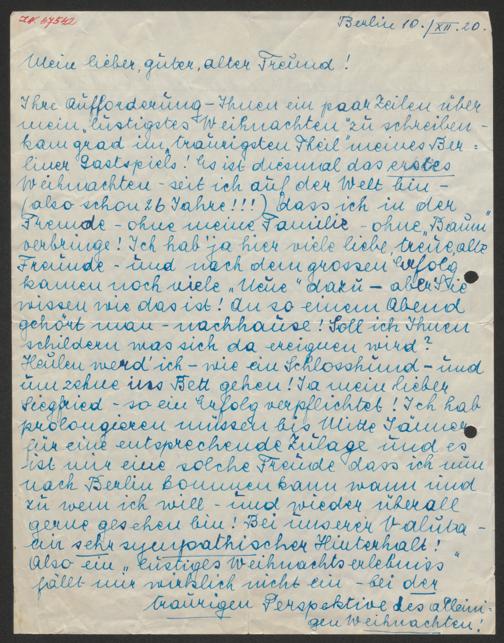 I.N. 47542
Berlin 10./XII. 20.
Mein lieber, guter, alter Freund!
Ihre Aufforderung – Ihnen ein paar Zeilen über
mein „lustigstes Weihnachten" zu schreiben –
kam grad im „traurigsten Theil" meines Ber-
liner Gastspiels! Es ist diesmal das erstes
Weihnachten – seit ich auf der Welt bin –
(also schon 26 Jahre!!!) dass ich in der
Fremde – ohne meine Familie – ohne „Baum"
verbringe! Ich hab' ja hier viele liebe, treue, alte
Freunde – und nach dem grossen Erfolg
kamen noch viele „Neue" dazu – aber Sie
wissen wie das ist! An so einem Abend
gehört man – nachhause! Soll ich Ihnen
schildern was sich da ereignen wird?
Heulen werd' ich – wie ein Schlosshund – und
um zehne ins Bett gehen! Ja mein lieber
Siegfried – so ein Erfolg verpflichtet! Ich hab
prolongieren müssen bis Mitte Jänner
für eine entsprechende Zulage und es
ist mir eine solche Freude dass ich nun
nach Berlin kommen kann wann und
zu wem ich will – und wieder überall
gerne gesehen bin! Bei unserer Valuta –
ein sehr sympathischer Hinterhalt!
Also ein „lustiges Weihnachtserlebniss"
fällt mir wirklich nicht ein – bei der
traurigen Perspektive des alleini-
gen Weihnachten!